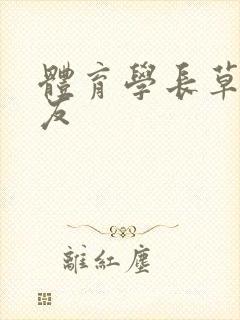 體育學長草
友
離紅塵